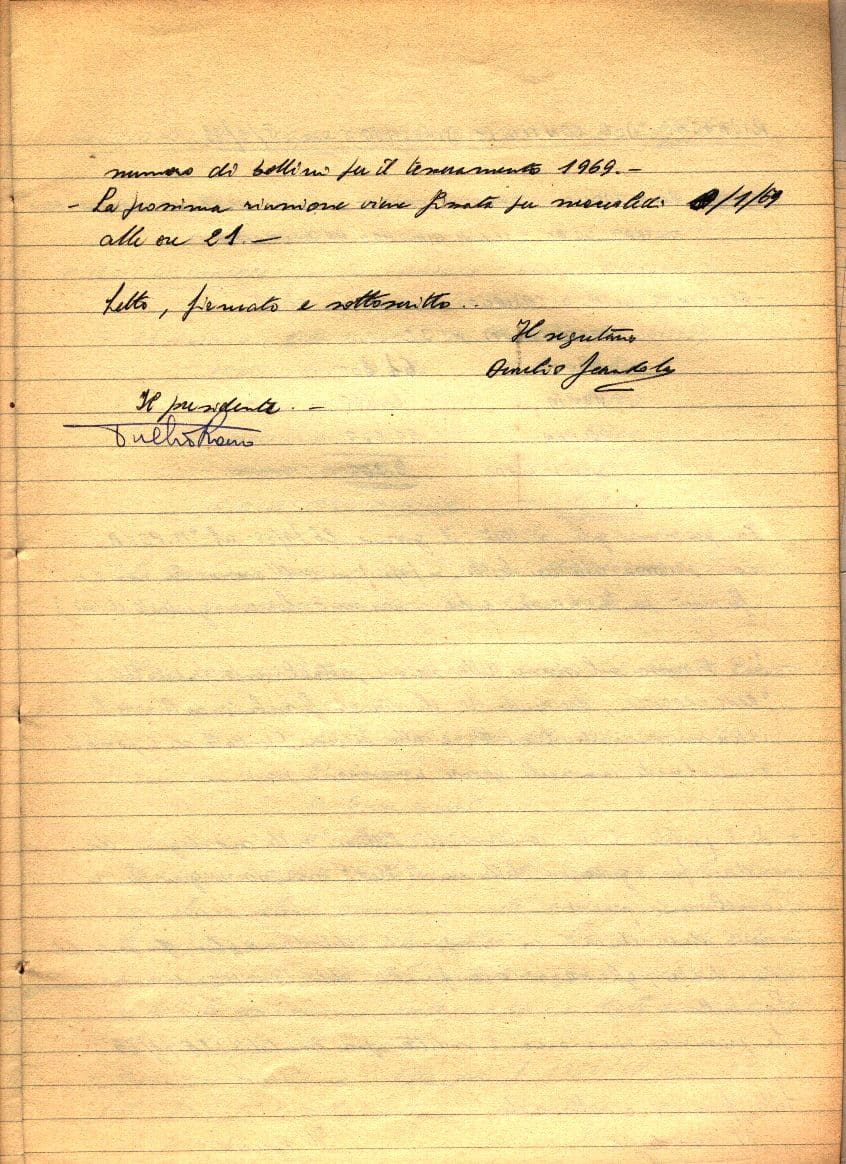 numero di bollini per il tesseramento 1969.–
– La prossima riunione viene fissata per mercoledì /1/69
alle ore 21.–
Letto, firmato e sottoscritto..
Il segretario
Aurelio
Il presidente. –
Tullio